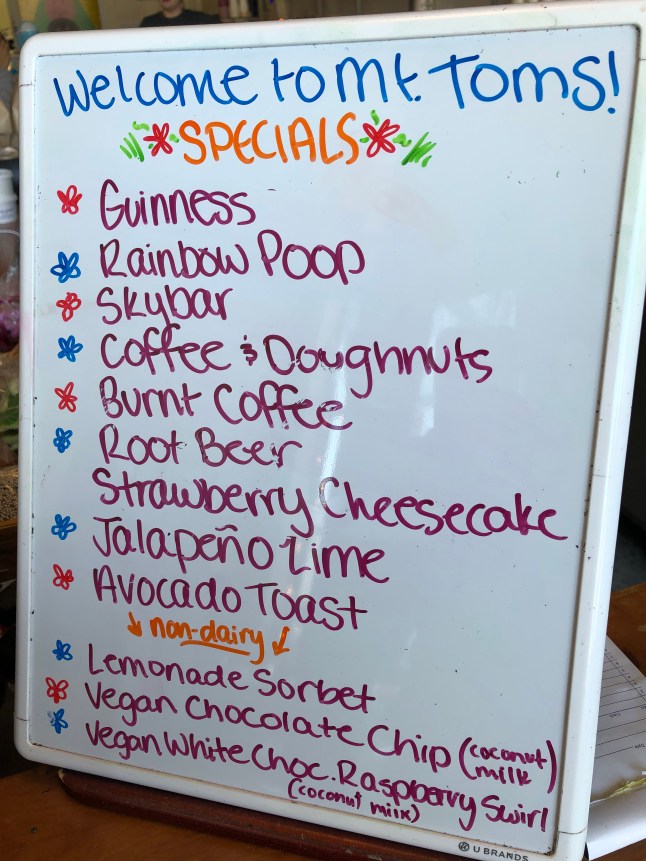 Welcome to Mt. Toms!
SPECIALS
Guinness
Rainbow Poop
Skybar
Coffee & Doughnuts
Burnt Coffee
Root Beer
Strawberry Cheesecake
Jalapeño Lime
Avocado Toast
non-dairy
Lemonade Sorbet
Vegan Chocolate Chip (coconut milk)
Vegan White Choc. Raspberry Swirl
(coconut milk)
U BRANDS